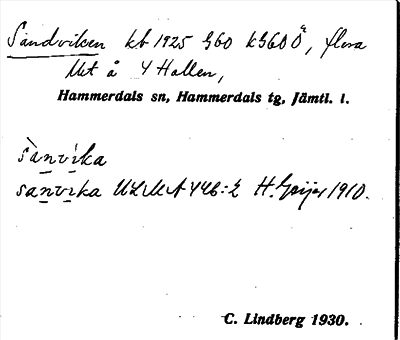 Sandviken kb 1925 S60 kS60Ö, flera
Mst å Y Hallen,
Hammerdals sn, Hammerdals tg, Jämtl. l.
sànvika
sanvika ULMA 446:2 H. Geijer 1910.
C. Lindberg 1930.